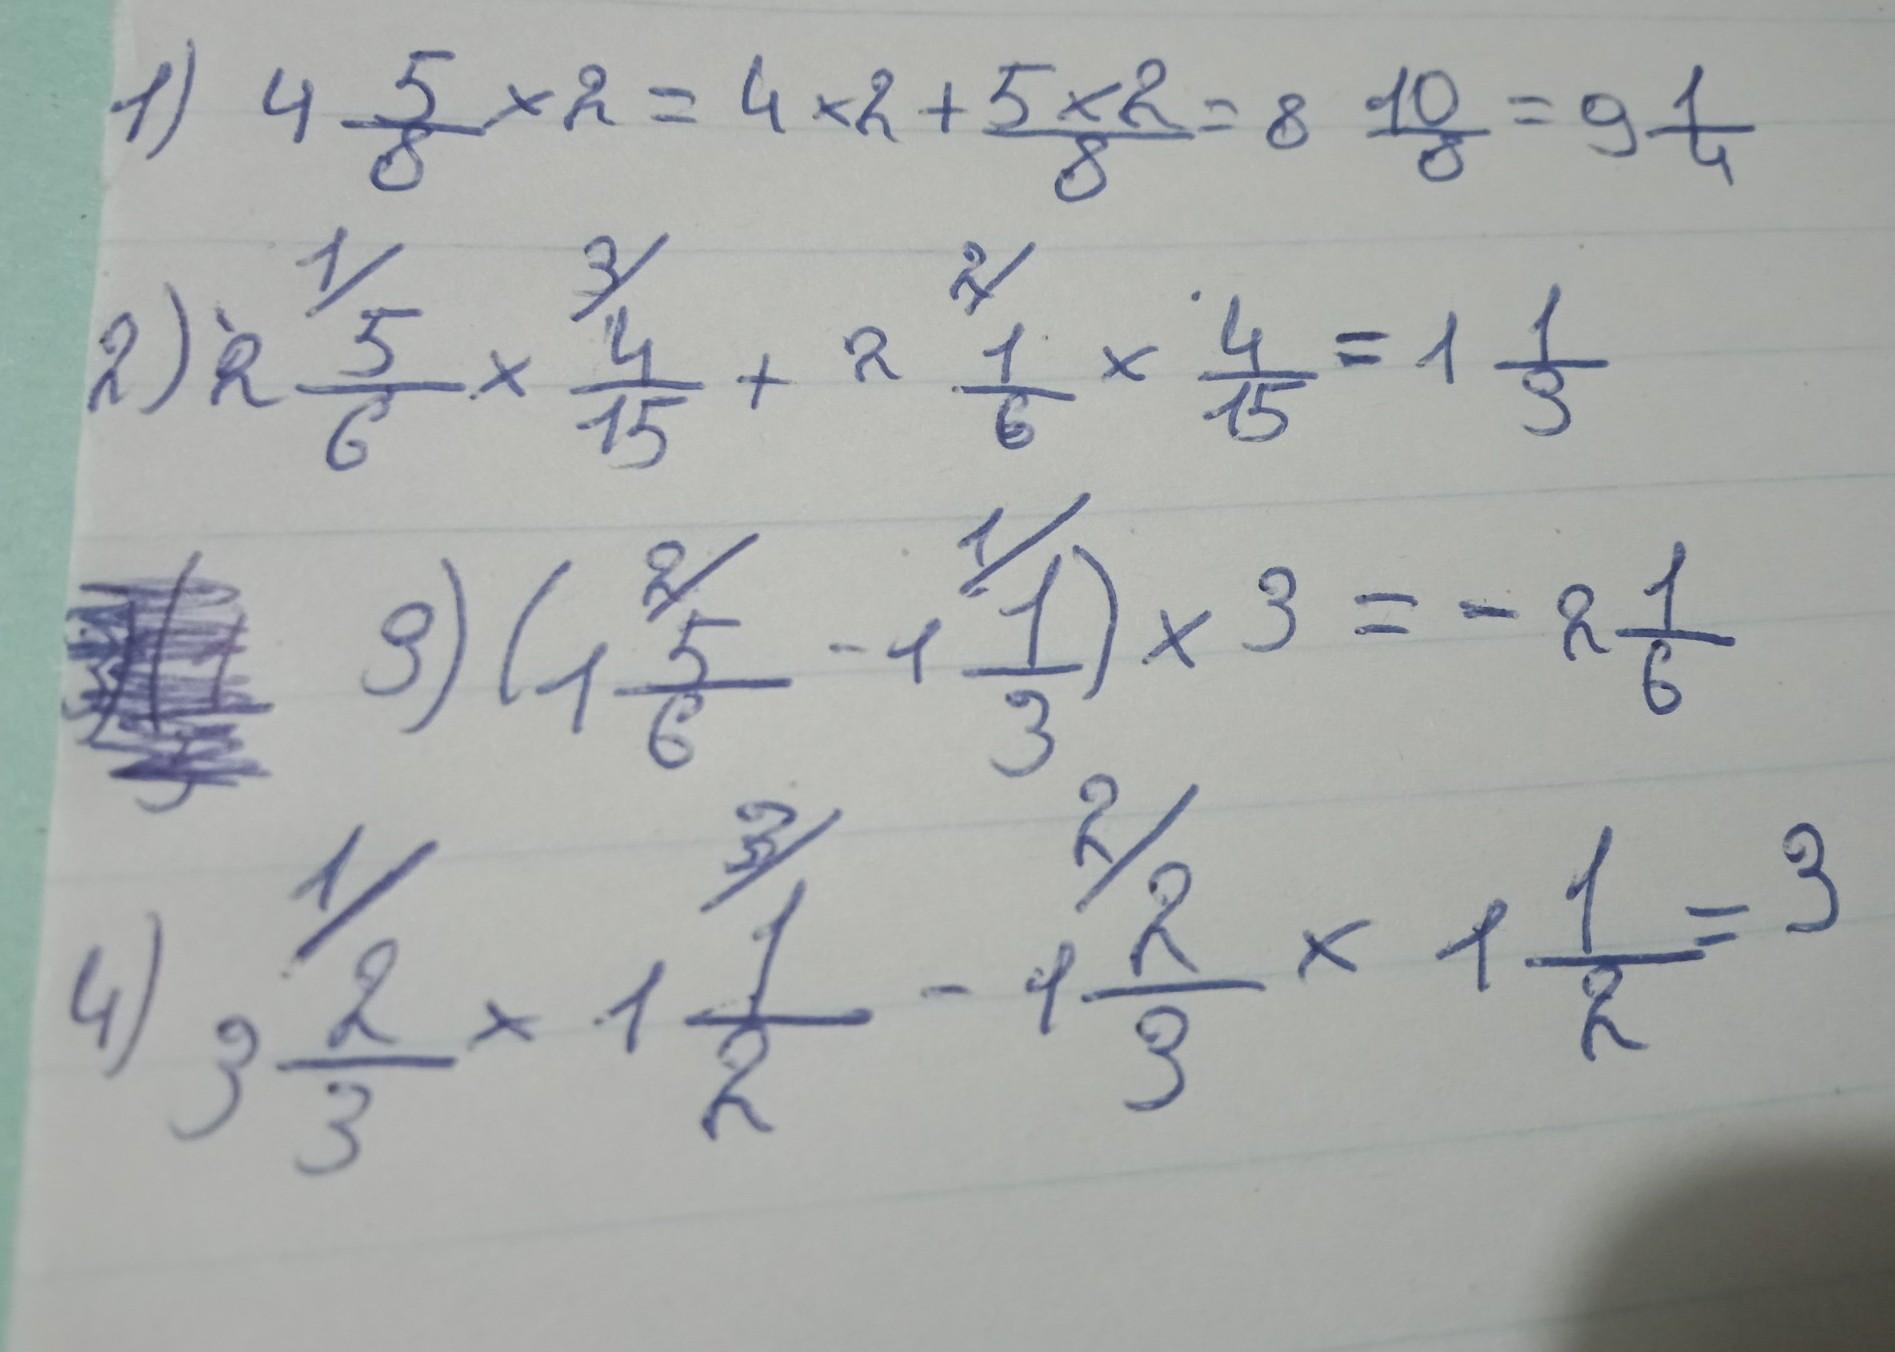 1) 4 5/8 × 2 = 4 × 2 + 5×2/8 = 8 10/8 = 9 1/4
1/ 3/ 2/
2) 2 5/6 × 4/15 + 2 1/6 × 4/15 = 1 1/3
2/ 1/
3) (1 5/6 - 1 1/3) × 3 = - 2 1/6
1/ 3/ 2/
4) 3 2/3 × 1 1/2 - 1 2/3 × 1 1/2 = 3